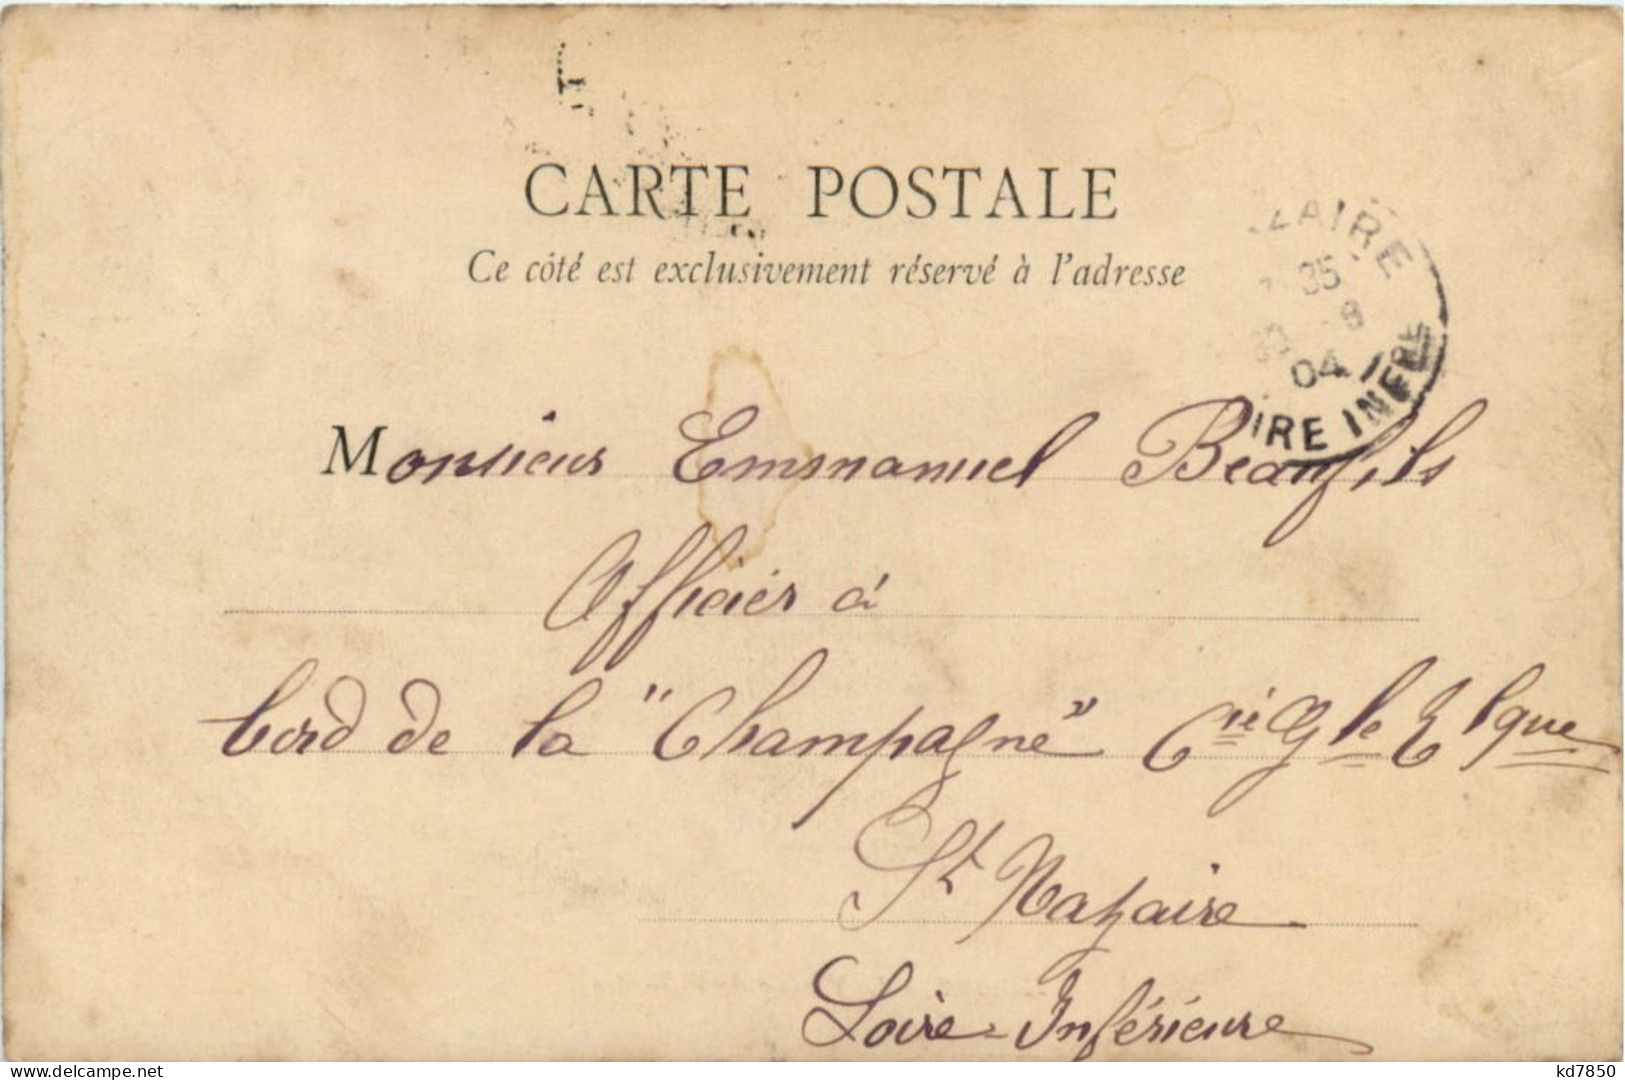 CARTE POSTALE
Ce côté est exclusivement réservé à l'adresse
ZAIRE
35
8
04
IRE INFRE
Monsieur Emmanuel Beaufils
Officier à
bord de la "Champagne" Cie Gle Tlque
St Nazaire
Loire-Inférieure
kd7850